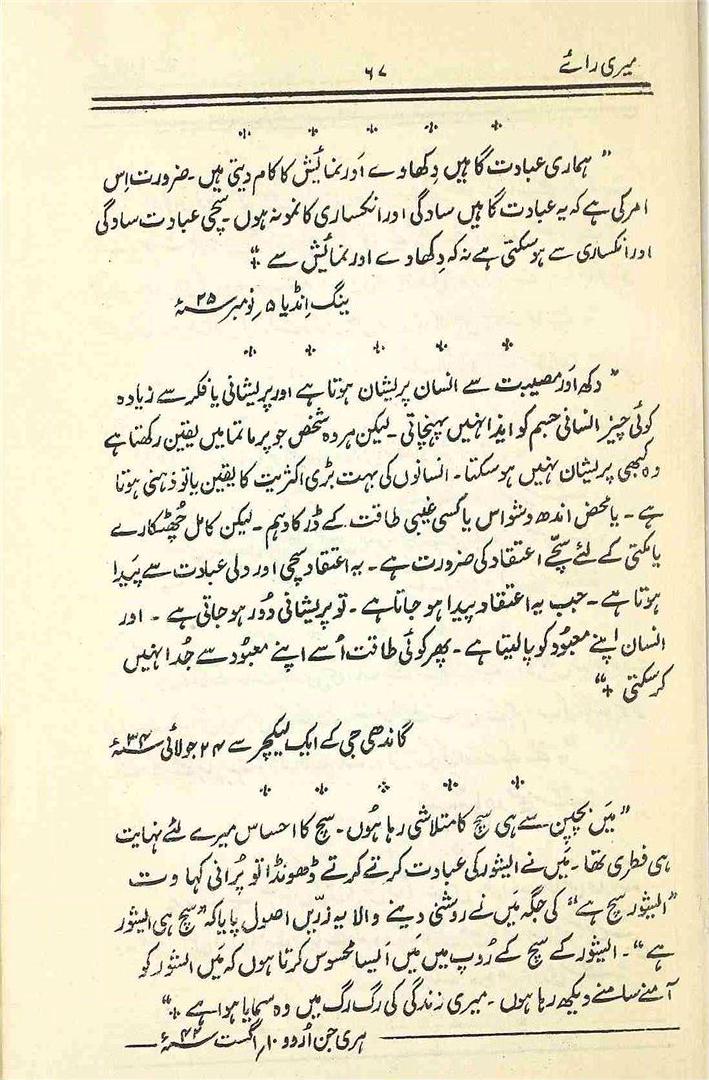 میری رائے ۶۷
” ہماری عبادت گاہیں دِکھاوے اَور نمائیش کا کام دیتی ہیں۔ ضرورت اِس
امر کی ہے کہ یہ عبادت گاہیں سادگی اور انکساری کا نمونہ ہوں۔ سچی عبادت سادگی
اور انکساری سے ہو سکتی ہے نہ کہ دِکھاوے اور نمائیش سے “
ینگ اِنڈیا ۵؍ نومبر ۲۵ء
” دکھ اَور مصیبت سے انسان پریشان ہوتا ہے اور پریشانی یا فکر سے زیادہ
کوئی چیز انسانی جسم کو ایذا نہیں پہنچاتی۔ لیکن ہر وہ شخص جو پرماتما میں یقین رکھتا ہے
وہ کبھی پریشان نہیں ہو سکتا۔ انسانوں کی بہت بڑی اکثریت کا یقین یا تو ذہنی ہوتا
ہے۔ یا محض اندھ وشواس یا کسی غیبی طاقت کے ڈر کا وہم۔ لیکن کامل چُھٹکارے
یا مکتی کے لئے سچّے اعتقاد کی ضرورت ہے۔ یہ اعتقاد سچی اور دلی عبادت سے پَیدا
ہوتا ہے۔ جب یہ اعتقاد پیدا ہو جاتا ہے۔ تو پریشانی دُور ہو جاتی ہے۔ اور
انسان اپنے معبُود کو پا لیتا ہے۔ پھر کوئی طاقت اُسے اپنے معبُود سے جُدا نہیں
کر سکتی “
گاندھی جی کے ایک لیکچر سے ۲۴ جولائی ۳۴ء
” مَیں بچپن سے ہی سچ کا متلاشی رہا ہُوں۔ سچ کا احساس میرے لئے نہایت
ہی فطری تھا۔ مَیں نے ایشور کی عبادت کرتے کرتے ڈھونڈا تو پُرانی کہاوت
” ایشور سچ ہے “ کی جگہ مَیں نے روشنی دینے والا یہ زرّیں اصول پایا کہ ” سچ ہی ایشور
ہے “۔ ایشور کے سچ کے رُوپ میں مَیں اَیسا محسوس کرتا ہوں کہ مَیں ایشور کو
آمنے سامنے دیکھ رہا ہوں۔ میری زندگی کی رگ رگ میں وہ سمایا ہوا ہے “
ہری جن اُردو ۱۰؍ اگست ۴۲ء